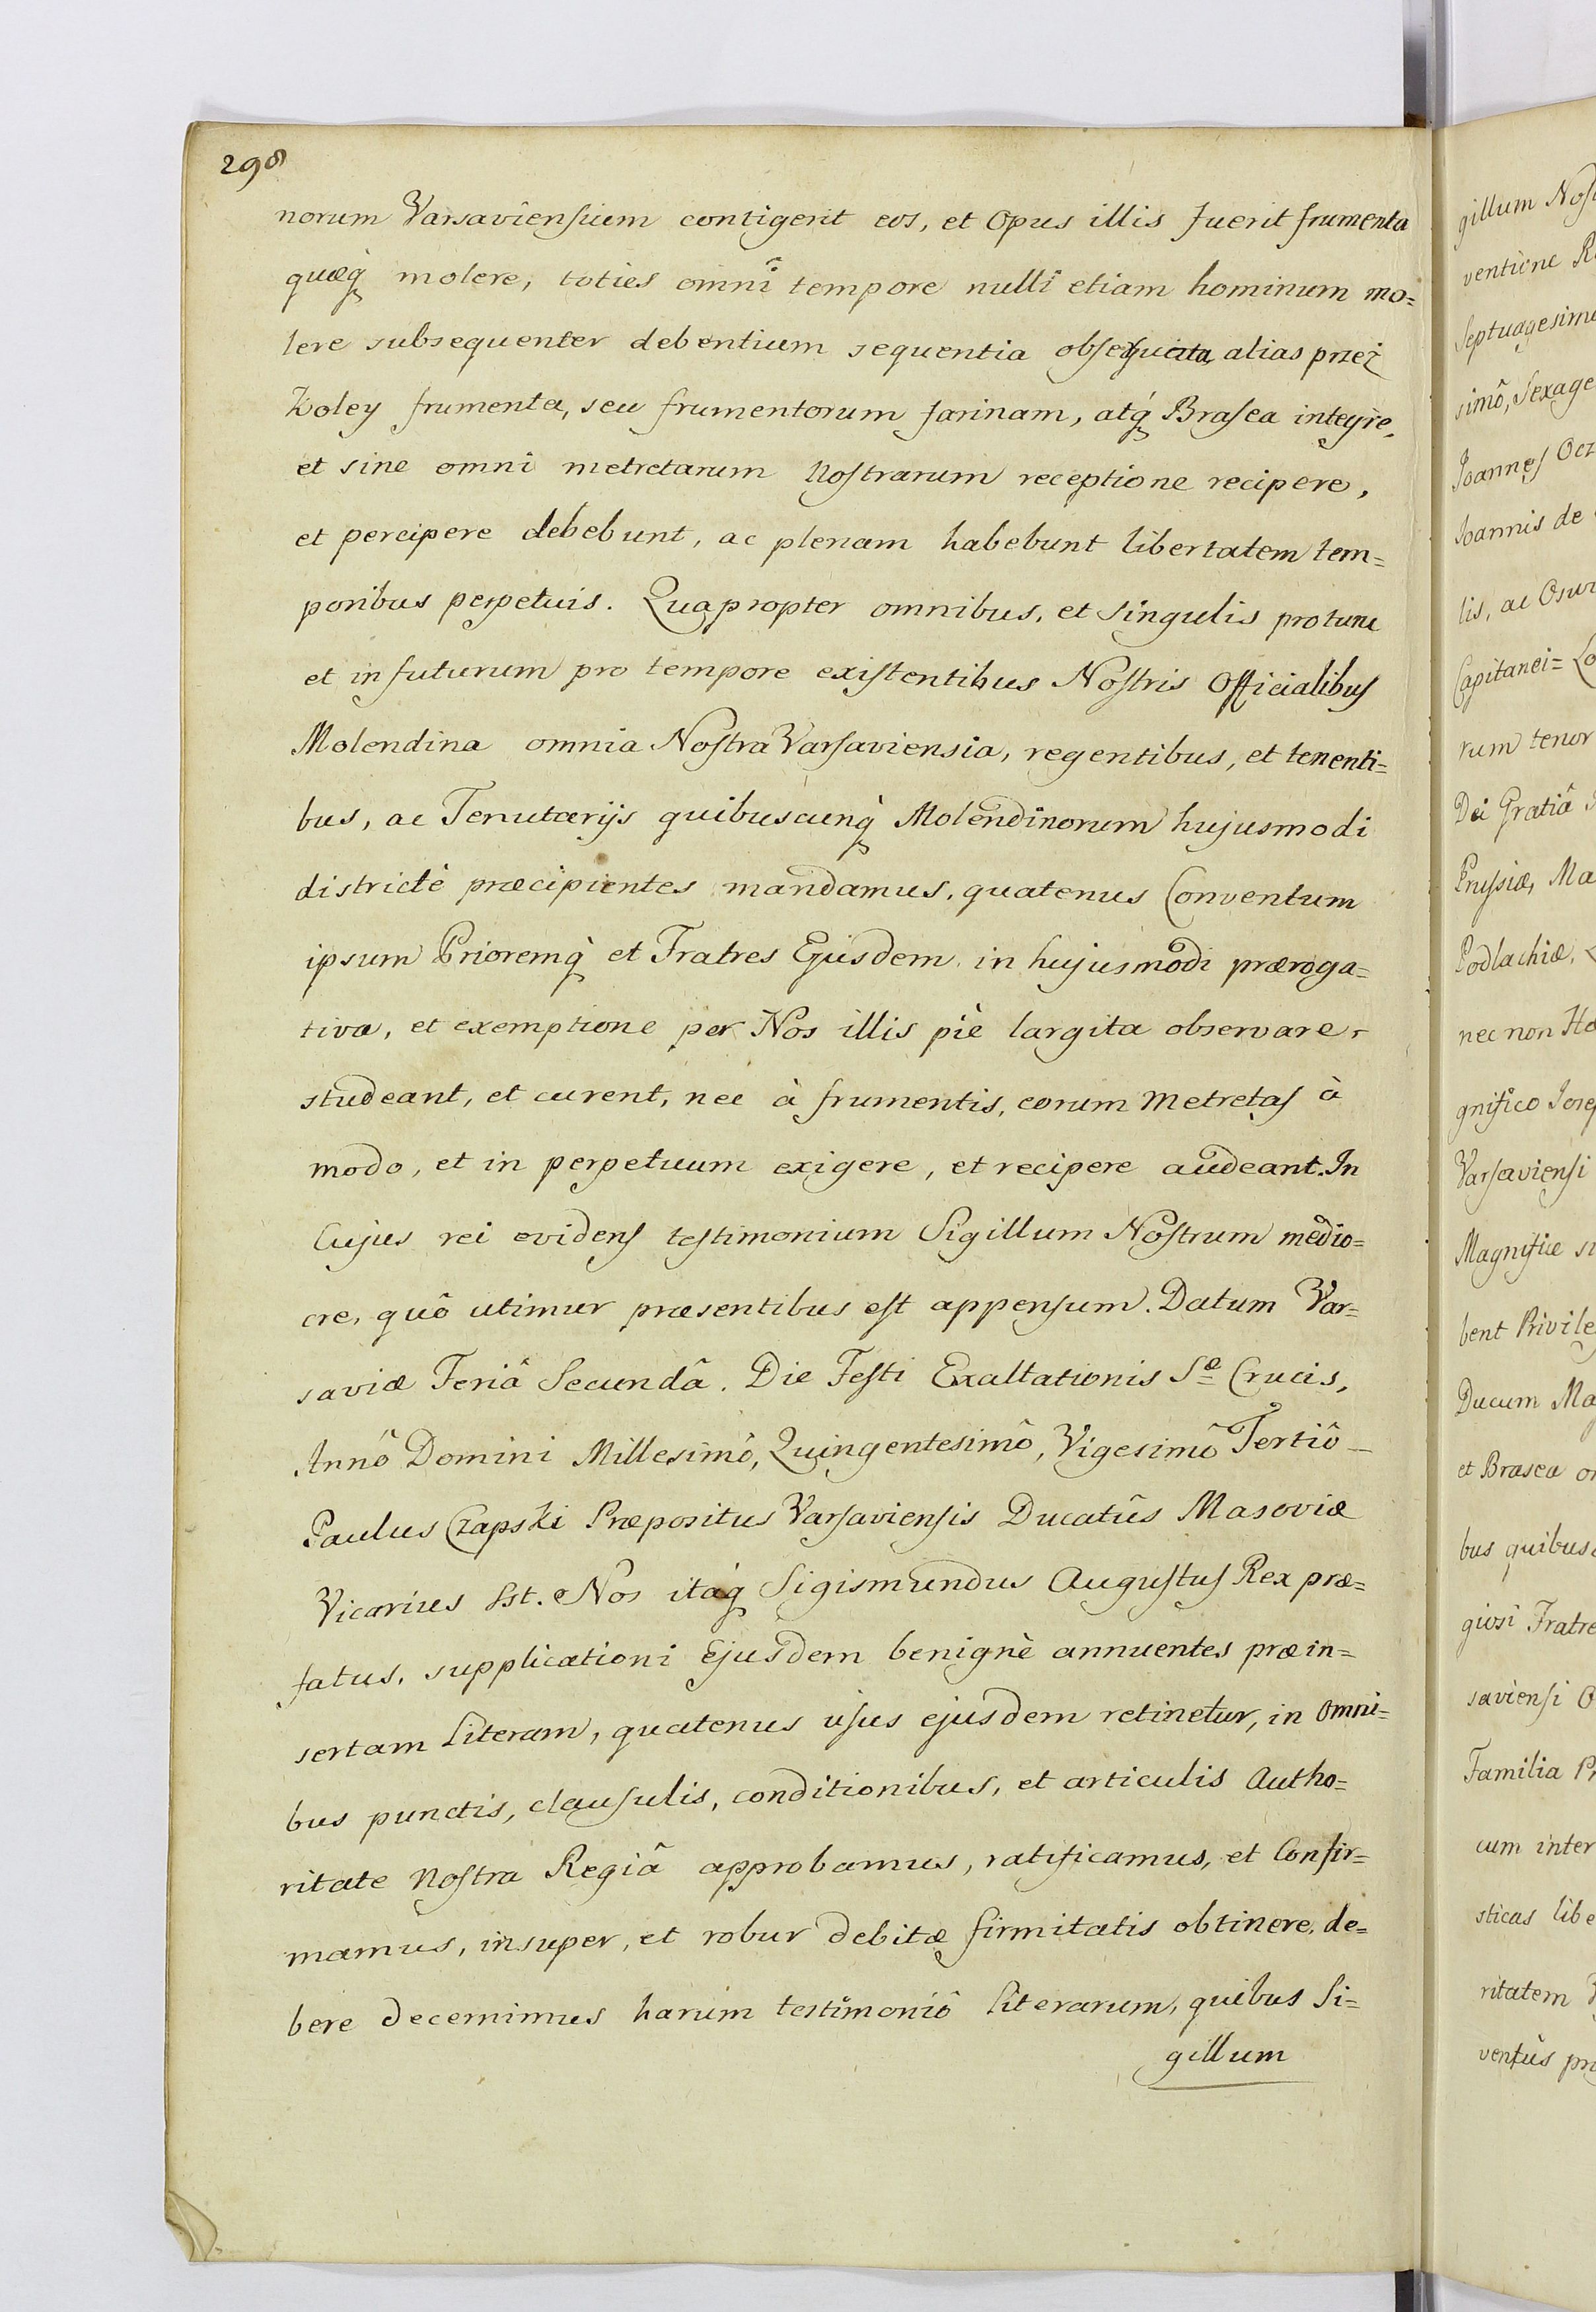 298
norum Varsaviensium contigerit eos, et Opus illis fuerit frumenta
quæq̀ molere, toties omnî tempore nullî etiam hominum mo=
lere subsequenter debentium sequentia alias przez
Koley frumenta, seu frumentorum farinam, atq́ Brasea integre,
et sine omni metretarum Nostrarum receptione recipere,
et percipere debebunt, ac plenam habebunt libertatem tem=
poribus perpetuis. Quapropter omnibus, et singulis protunc
et in futurum pro tempore existentibus Nostris Officialibus
Molendina omnia Nostra Varsaviensia, regentibus, et tenenti=
bus, ac Tenutarijs quibuscunq̀ Molendinorum hujusmodi
districtè præcipientes mandamus, quatenus Conventum
ipsum Prioremq̀ et Fratres Ejusdem in hujusmodi præroga=
tiva, et exemptione per Nos illis piè largita observare
studeant, et curent, nec à frumentis, eorum Metretas à
modo, et in perpetuum exigere, et recipere audeant. In
Cujus rei evidens testimonium Sigillum Nostrum medio=
cre, quô utimur præsentibus est appensum. Datum Var=
saviæ Feriâ Secundâ. Die Festi Exaltationis Sæ Crucis,
Annô Domini Millesimô, Quingentesimô, Vigesimô Tertiô
Paulus Czapski Præpositus Varsaviensis Ducatûs Masoviæ
Vicarius sst. Nos itáq Sigismundus Augustus Rex præ=
fatus, supplicationi Ejusdem benignè annuentes præin=
sertam Literam, quatenus usus ejusdem retinetur, in Omni=
bus punctis, clausulis, conditionibus, et articulis Autho=
ritate Nostra Regiâ approbamus, ratificamus, et Confir=
mamus, insuper, et robur debitæ firmitatis obtinere, de=
bere decernimus harum testimoniô Literarum, quibus Si=
gillum
gillum
ventione
simô,
Joannes
Joannis de
lis, ac
Capitanei=
rum tenor
Dei Gratiâ
Prussiæ, Ma
Podlachiæ,
nec non
gnifico
Varsaviensi
Magnificæ
bent
Ducum Ma
et Brasea
bus
giosi
saviensi
Familia
cum inter
sticas
ritatem
ventûs